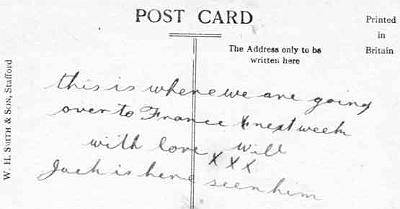 POST CARD
Printed
in
Britain
The Address only to be
written here
W. H. SMITH & SON, Stafford
this is where we are going
over to France X next week
with love Will
X X X
Jack is here seen him